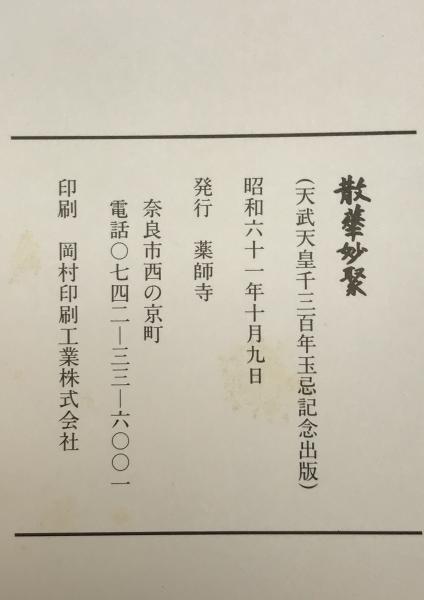 散華妙聚
(天武天皇千三百年玉忌記念出版)
昭和六十一年十月九日
発行　薬師寺
奈良市西の京町
電話〇七四二―三三―六〇〇一
印刷　岡村印刷工業株式会社